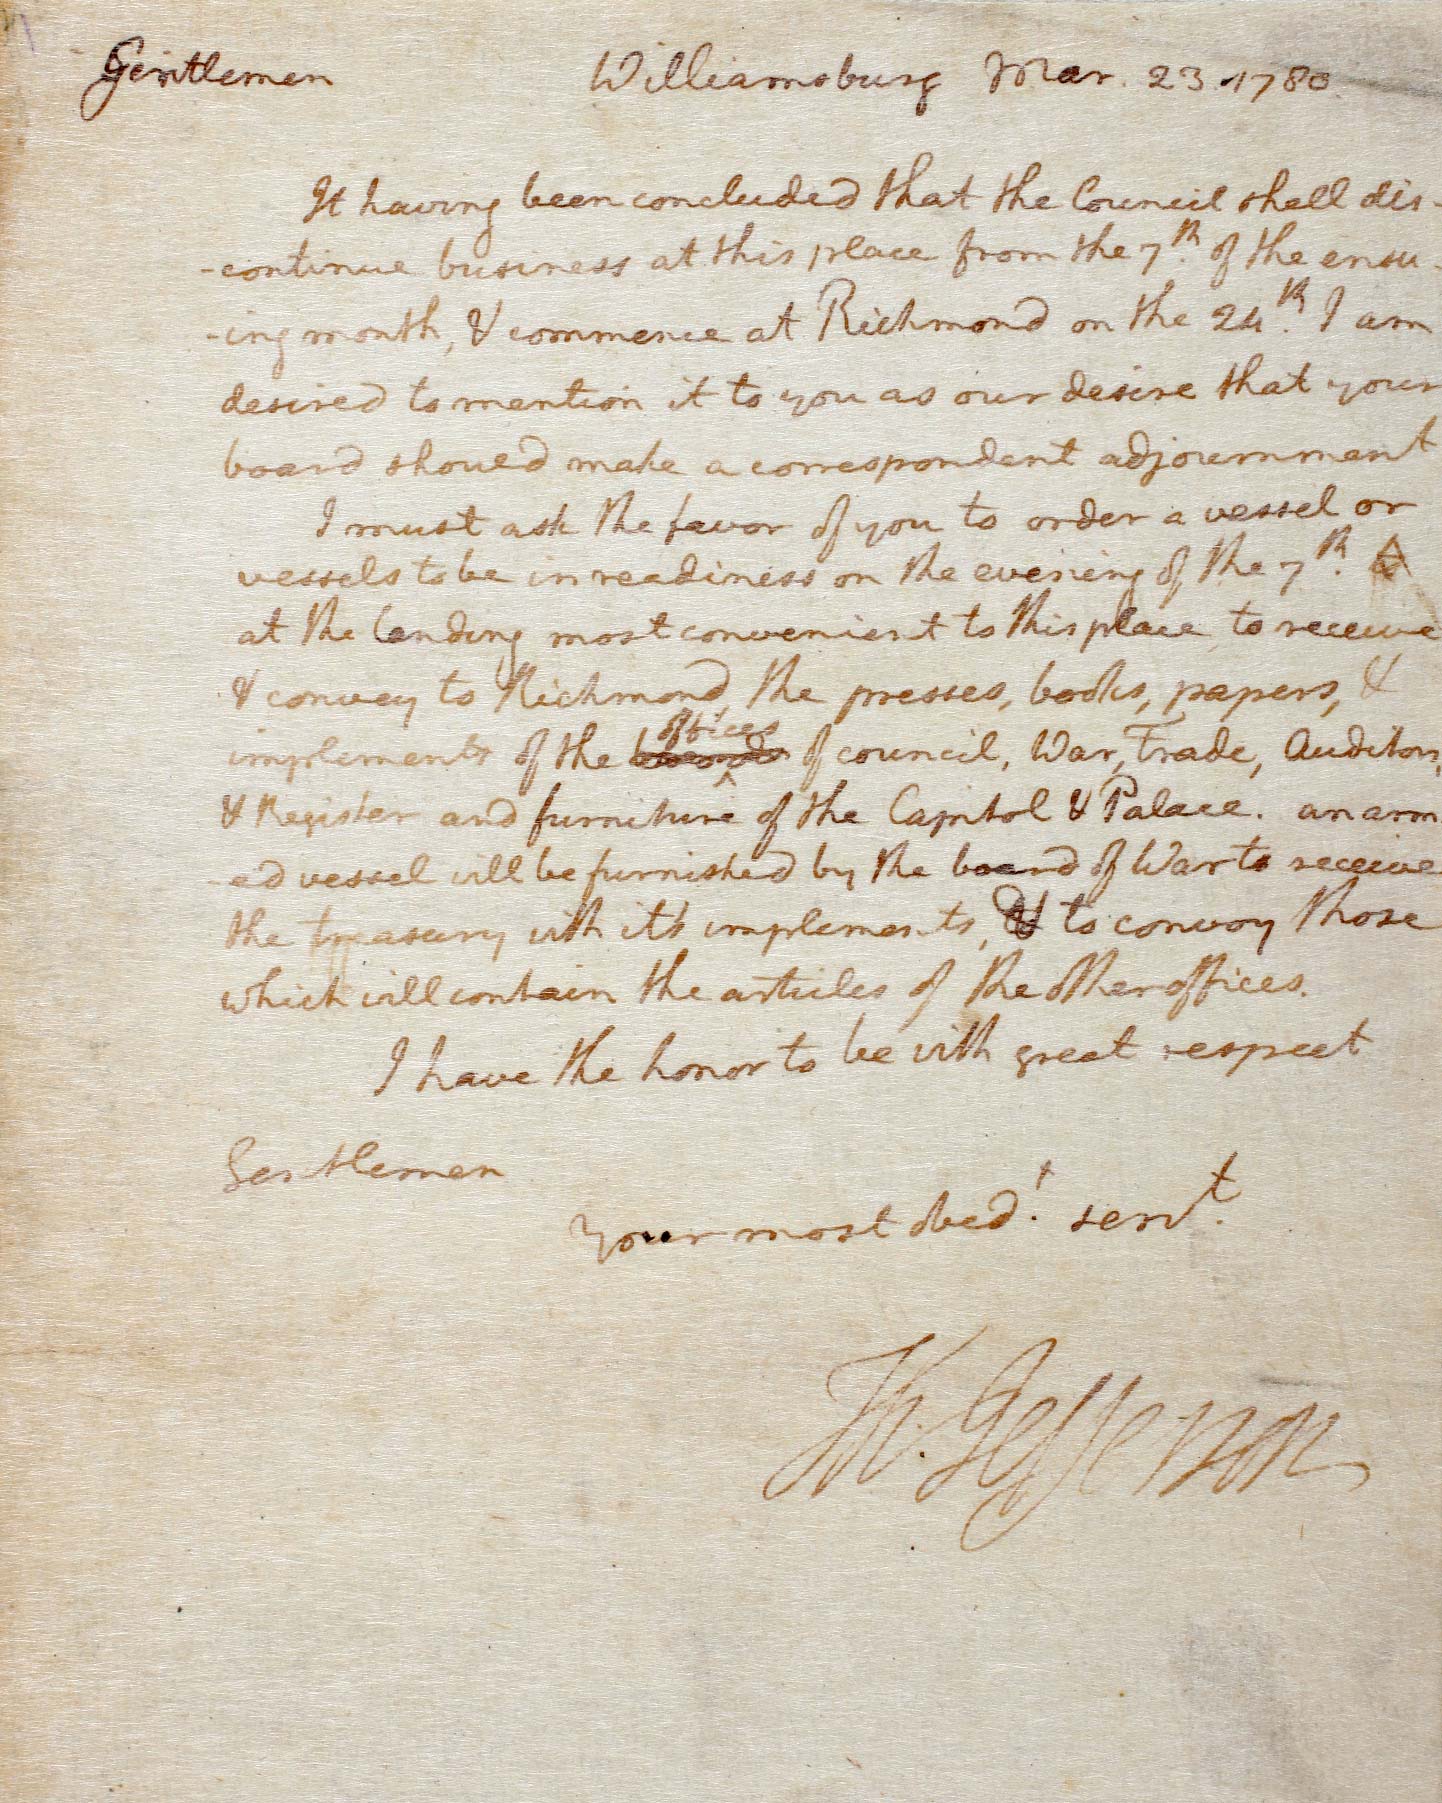 Gentlemen Williamsburg Mar. 23. 1780.
It having been concluded that the Council shall dis-
-continue business at this place from the 7th. of the ensu-
-ing month, & commence at Richmond on the 24th. I am
desired to mention it to you as our desire that your
board should make a correspondent adjournment
I must ask the favor of you to order a vessel or
vessels to be in readiness on the evening of the 7th.
at the landing most convenient to this place to receive
& convey to Richmond the presses, books, papers, &
offices
implements of the boards of council, War, Trade, Auditors,
& Register and furniture of the Capitol & Palace. an arm
-ed vessel will be furnished by the board of War to receive
the treasury with it's implements, & to convoy those
which will contain the articles of the other offices.
I have the honor to be with great respect
Gentlemen
Your most obedt. servt.
Th. Jefferson